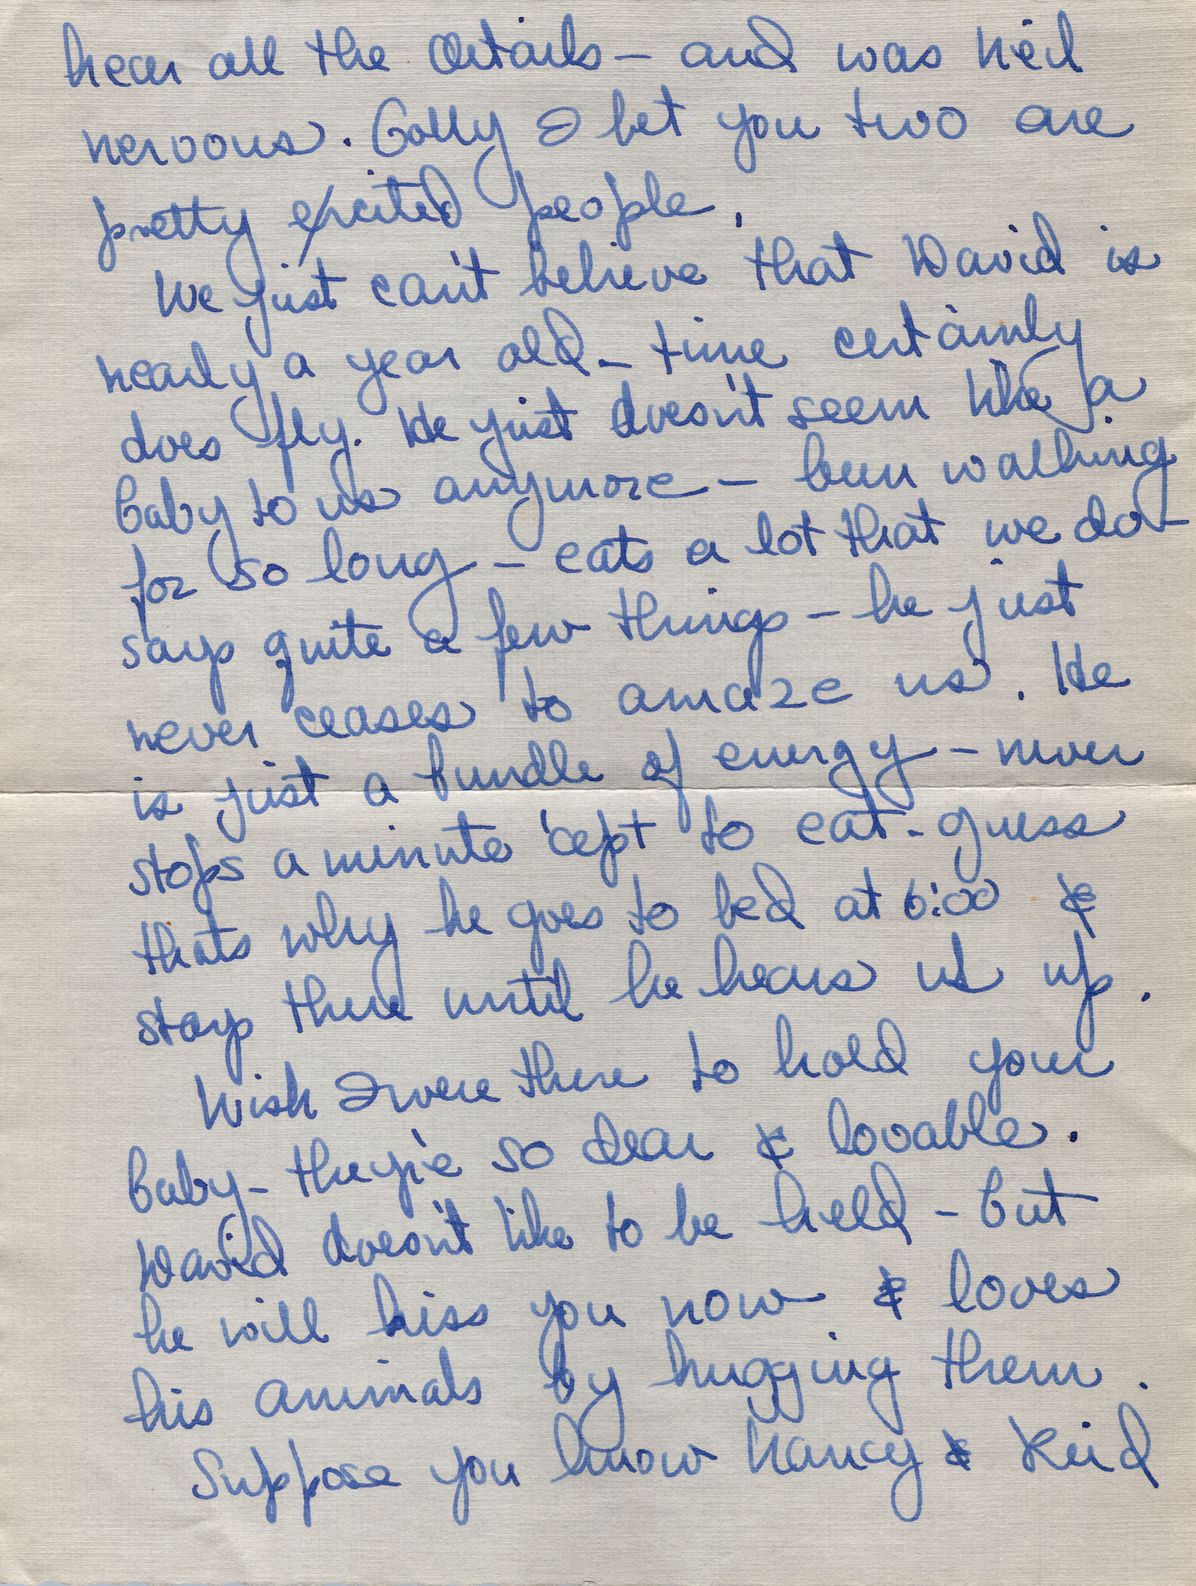 hear all the details – and was Neil
nervous. Golly I bet you two are
pretty excited people.
We just can't believe that David is
nearly a year old – time certainly
does fly. He just doesn't seem like a
baby to us anymore – been walking
for so long – eats a lot that we do –
says quite a few things – he just
never ceases to amaze us. He
is just a bundle of energy – never
stops a minute 'cept to eat – guess
thats why he goes to bed at 6:00 &
stays there until he hears us up.
Wish I were there to hold your
baby – they're so dear & lovable.
David doesn't like to be held – but
he will kiss you now & loves
his animals by hugging them.
Suppose you know Nancy & Reid